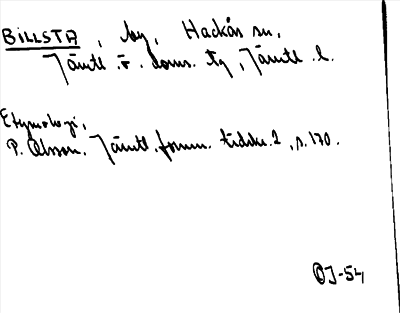 BILLSTA, by, Hackås sn,
Jämtl. v. doms. tg, Jämtl. l.
Etymologi,
P. Olsson. Jämtl. fornm. tidskr. 2, s. 170.
OJ-54